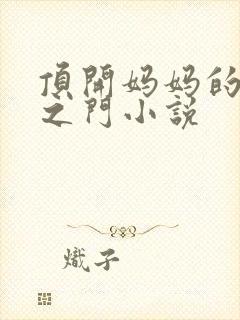 頂開妈妈的
之門小説
熾子